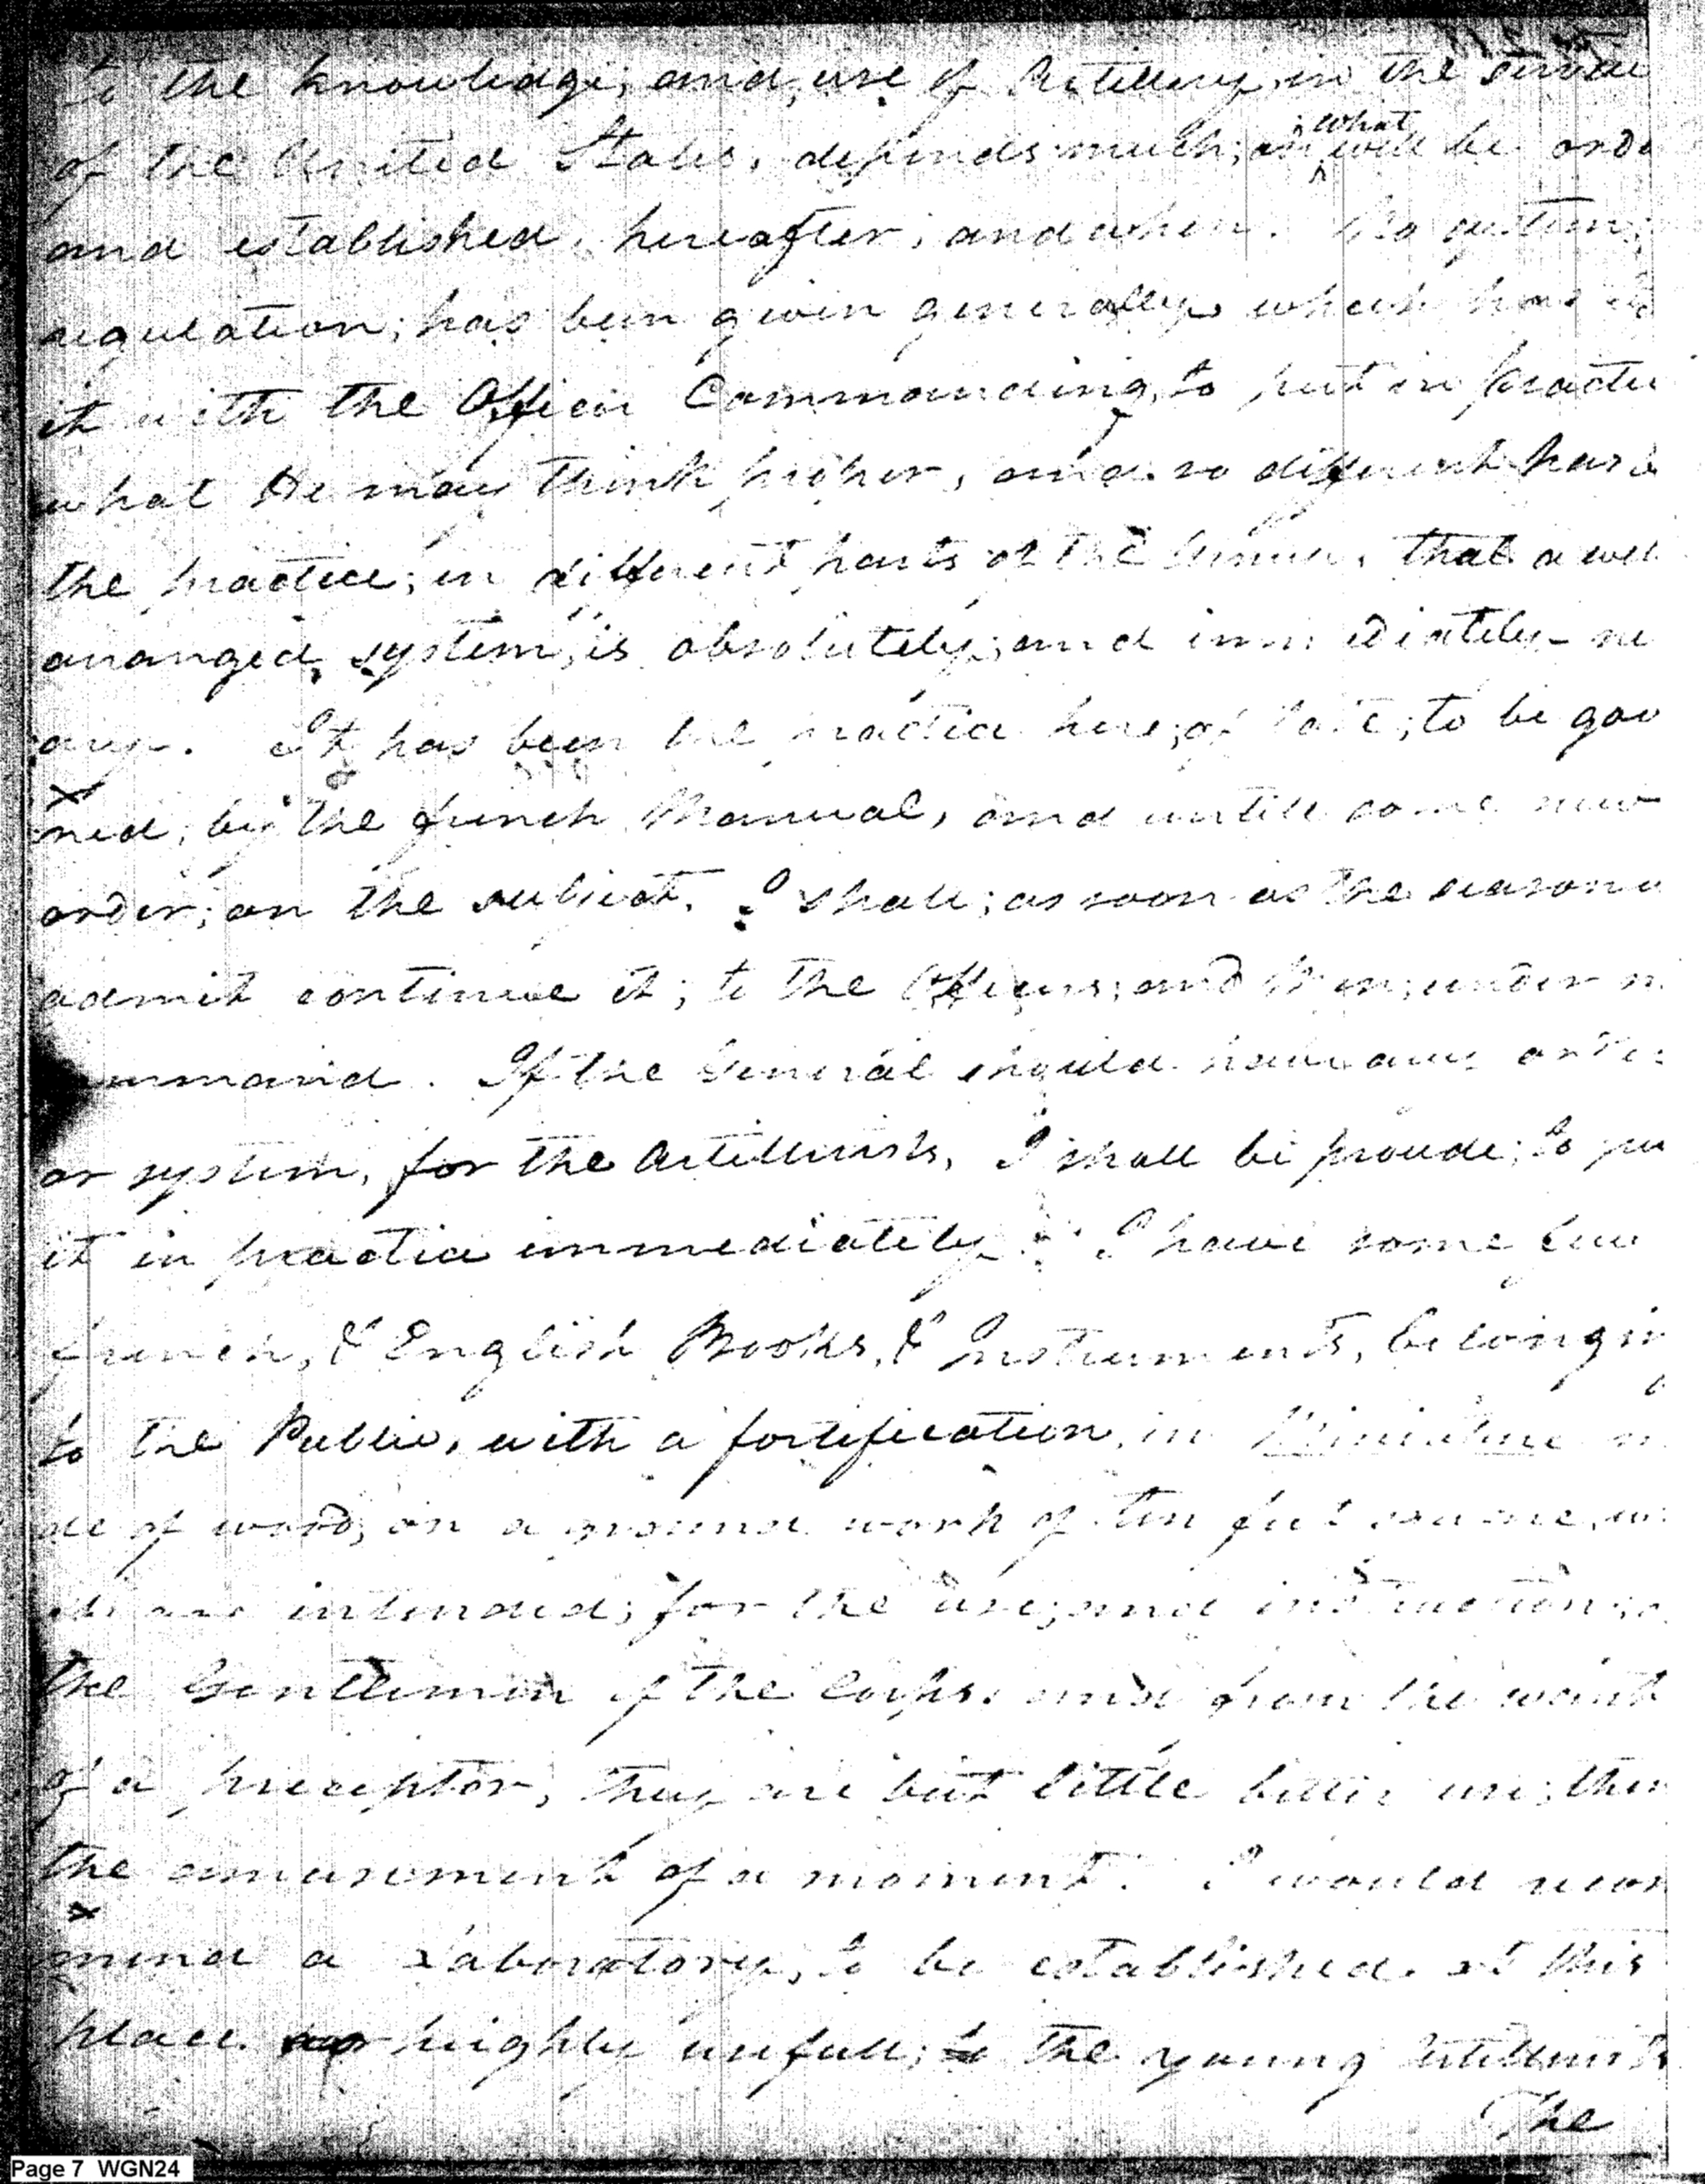 to the knowledge, and, use of Artillery, in the service
of the United States, depends much, on what will be orde
and established, hereafter, and when. No system,
regulation, has been given generally, which has
it with the Officer Commanding, to put in practice
what He may think proper, and so different has
the practice, in different parts of the Armies, that a well
arranged, system, is absolutely, and immediately ne
ary. It has been the practice here, of late, to be gov
ned, by the french Manual, and untill some new
order, on the subject. I shall, as soon as the season
admit continue it, to the Officers, and Men, under m
ommand. If the General should have any order
or system, for the Artillerists, I shall be proude, to pu
it in practice immediately. I have some few
french, & English Books, & Instruments, belongin
to the Public, with a fortification, in Miniature m
de of wood, on a ground work of ten feet square, w
are intended, for the use, and instruction, o
the Gentlemen of the Corps, and from the want
of a preceptor, they are but little better use, then
the amusement of a moment. I would recom
mend a Laboratory, to be established at this
place highly usefull, to the young Artillerists
The
Page 7 WGN24